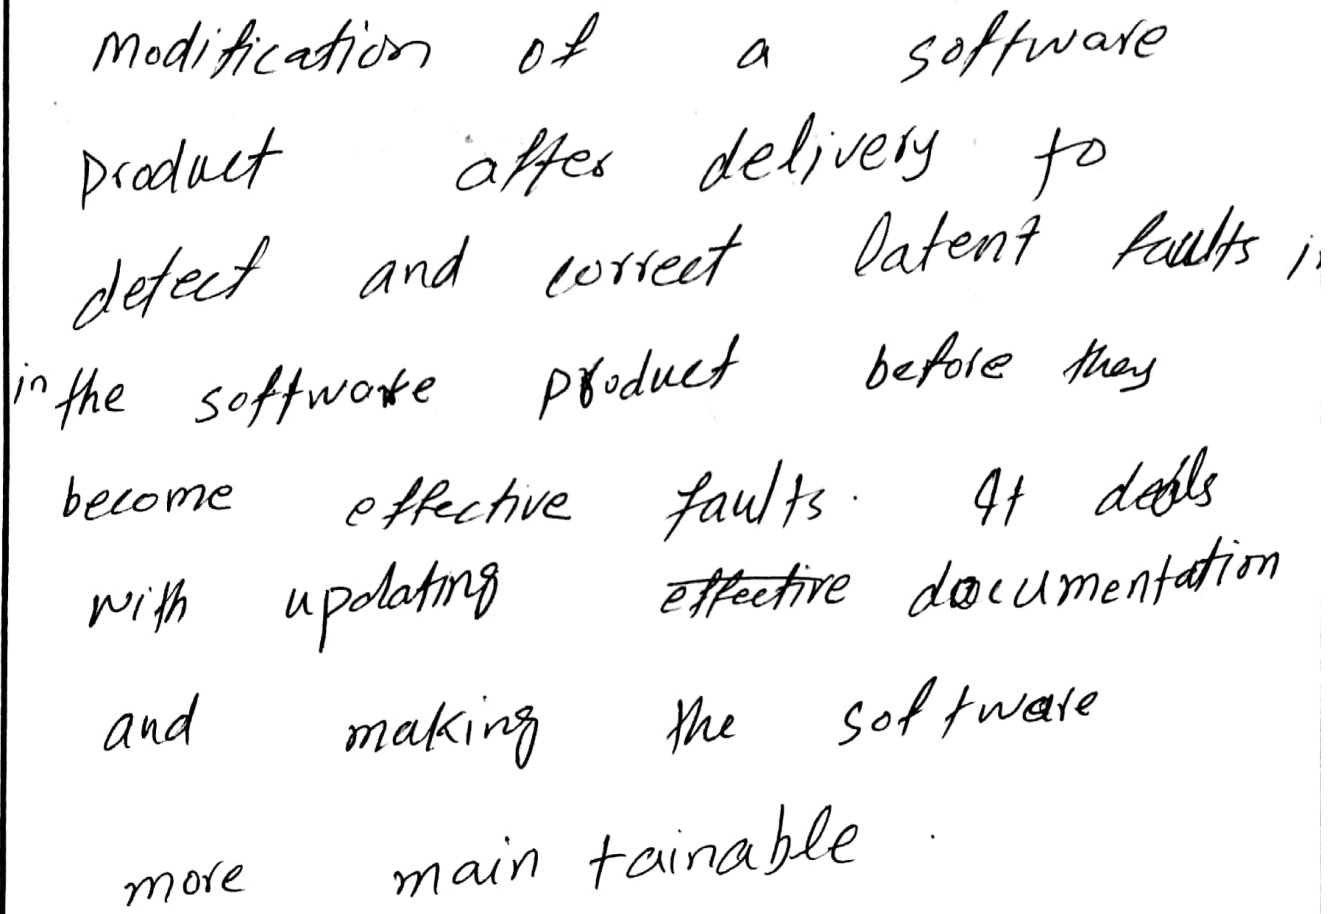 Modification of a software
product after delivery to
detect and correct latent faults in
in the software product before they
become effective faults. It deals
with updating ~~effective~~ documentation
and making the software
more main tainable.